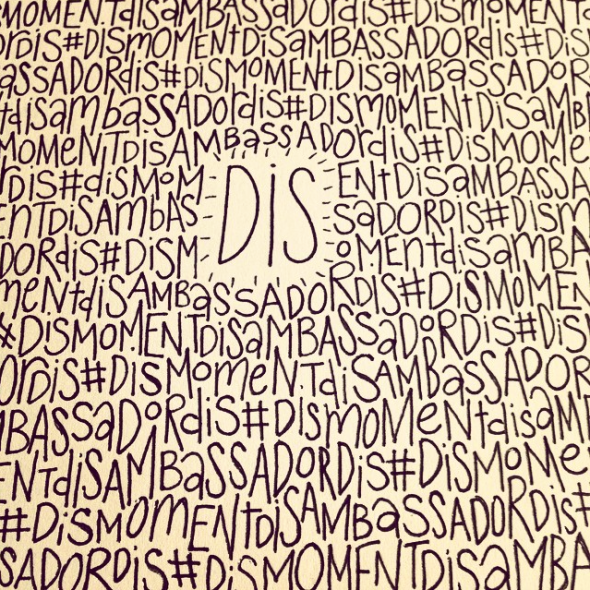 SMOMENTdiSAMBASSADORdis#DisMOMENTd
ORDIS#DISMOMENtDiSAmBASSADORdis#Dis
ASSADORdis#DiSMOMENtDisambaSSADOR
tdisambaSSADOrdis#DISmOMENtDisAMB
MOMeNTDISAMBassADOrdis#DisMOMe
RDiS#diSMoM ENtDISaMBASSA
ENTDISAMbAS DiS SaDORDIS#DISM
DORdiS#DISM oMENtdisamBA
meNtdiSAMBaSSADORDIS#DiSMOMEN
#DISMOMENTDisaMBASSADORDis#DiS
ORDis#DISMomeNTdiSAMBaSSADOR
MBASSaDoRdiS#DismoMeNtdisam
ENTdiSAMBaSSADORDis#DISMOMe
#DiSMOmENtDiSAMBaSSADORDis#
SSADORDiS#DiSMOMENTDisaMBA